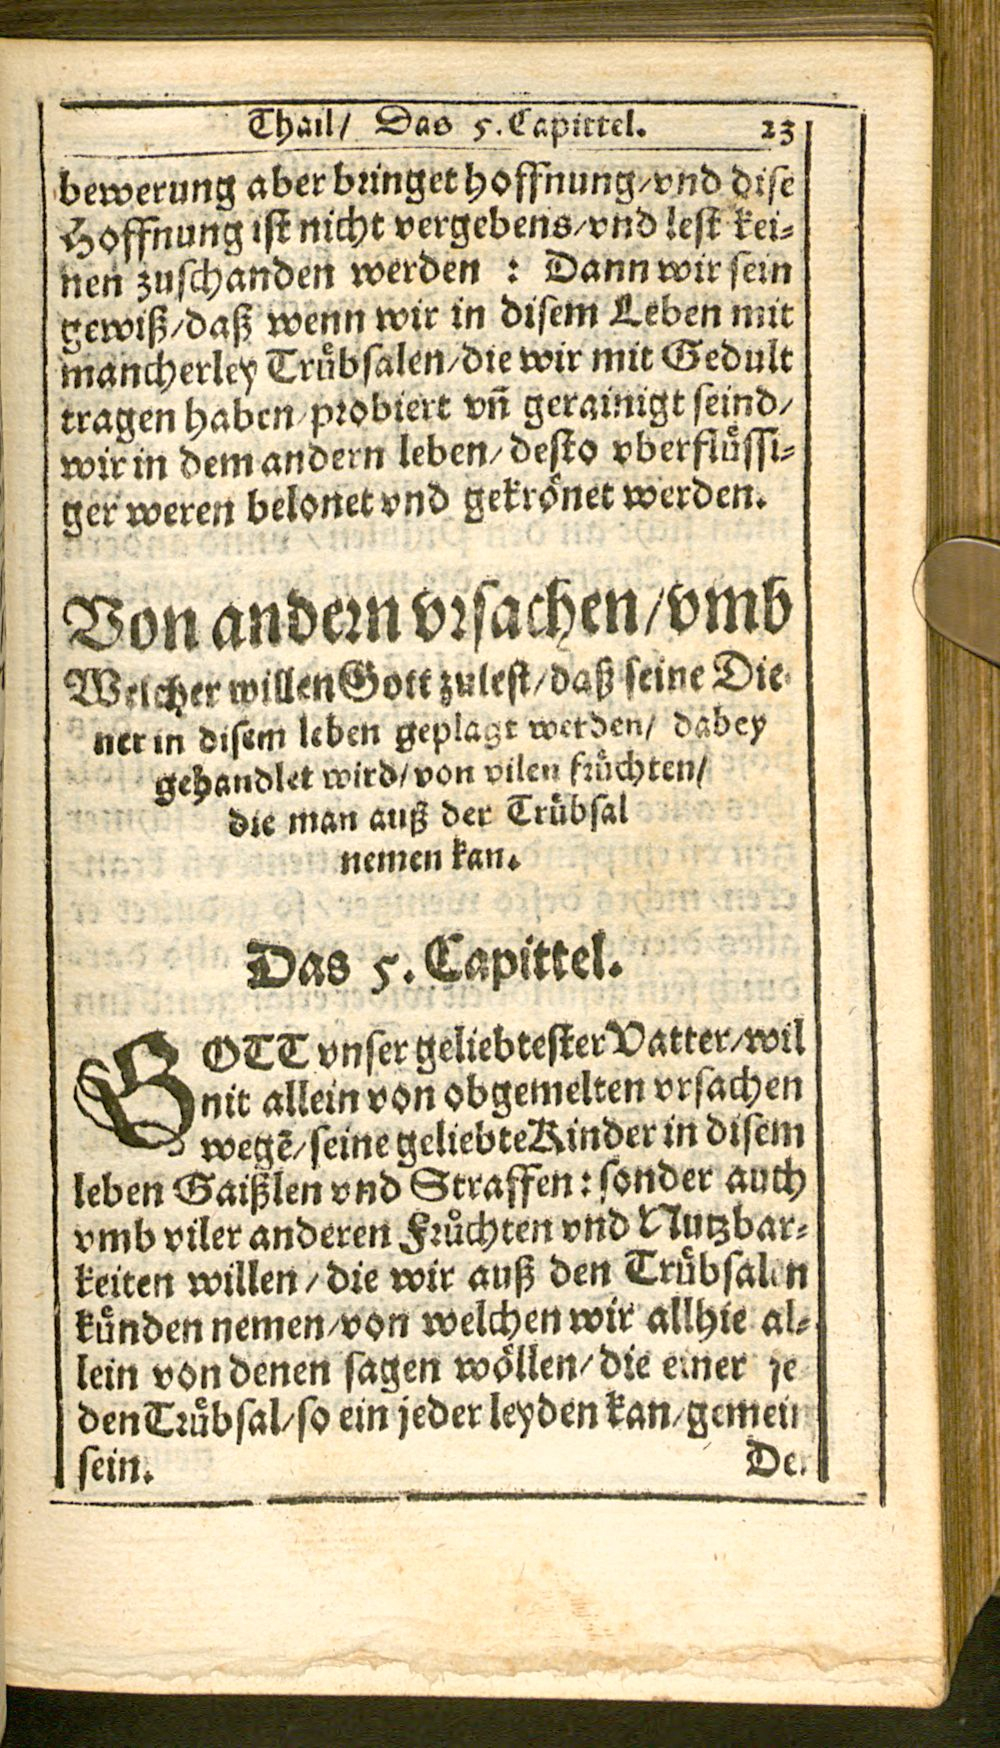 Thail/ Das 5. Capittel. 23
bewerung aber bringet hoffnung/vnd dise
Hoffnung ist nicht vergebens/vnd lest kei-
nen zuschanden werden : Dann wir sein
gewiß/daß wenn wir in disem Leben mit
mancherley Truͤbsalen/die wir mit Gedult
tragen haben/probiert vñ gerainigt seind/
wir in dem andern leben/desto vberfluͤssi-
ger weren belonet vnd gekroͤnet werden.
Von andern vrsachen/vmb
Welcher willen Gott zulest/daß seine Die-
ner in disem leben geplagt werden/ dabey
gehandlet wird/von vilen fruͤchten/
die man auß der Truͤbsal
nemen kan.
Das 5. Capittel.
GOTT vnser geliebtester Vatter/wil
nit allein von obgemelten vrsachen
wegē/seine geliebte Kinder in disem
leben Gaißlen vnd Straffen: sonder auch
vmb viler anderen Fruͤchten vnd Nutzbar-
keiten willen/die wir auß den Truͤbsalen
kuͤnden nemen/von welchen wir allhie al-
lein von denen sagen woͤllen/die einer je
den Truͤbsal/so ein jeder leyden kan/gemein
sein.
Der